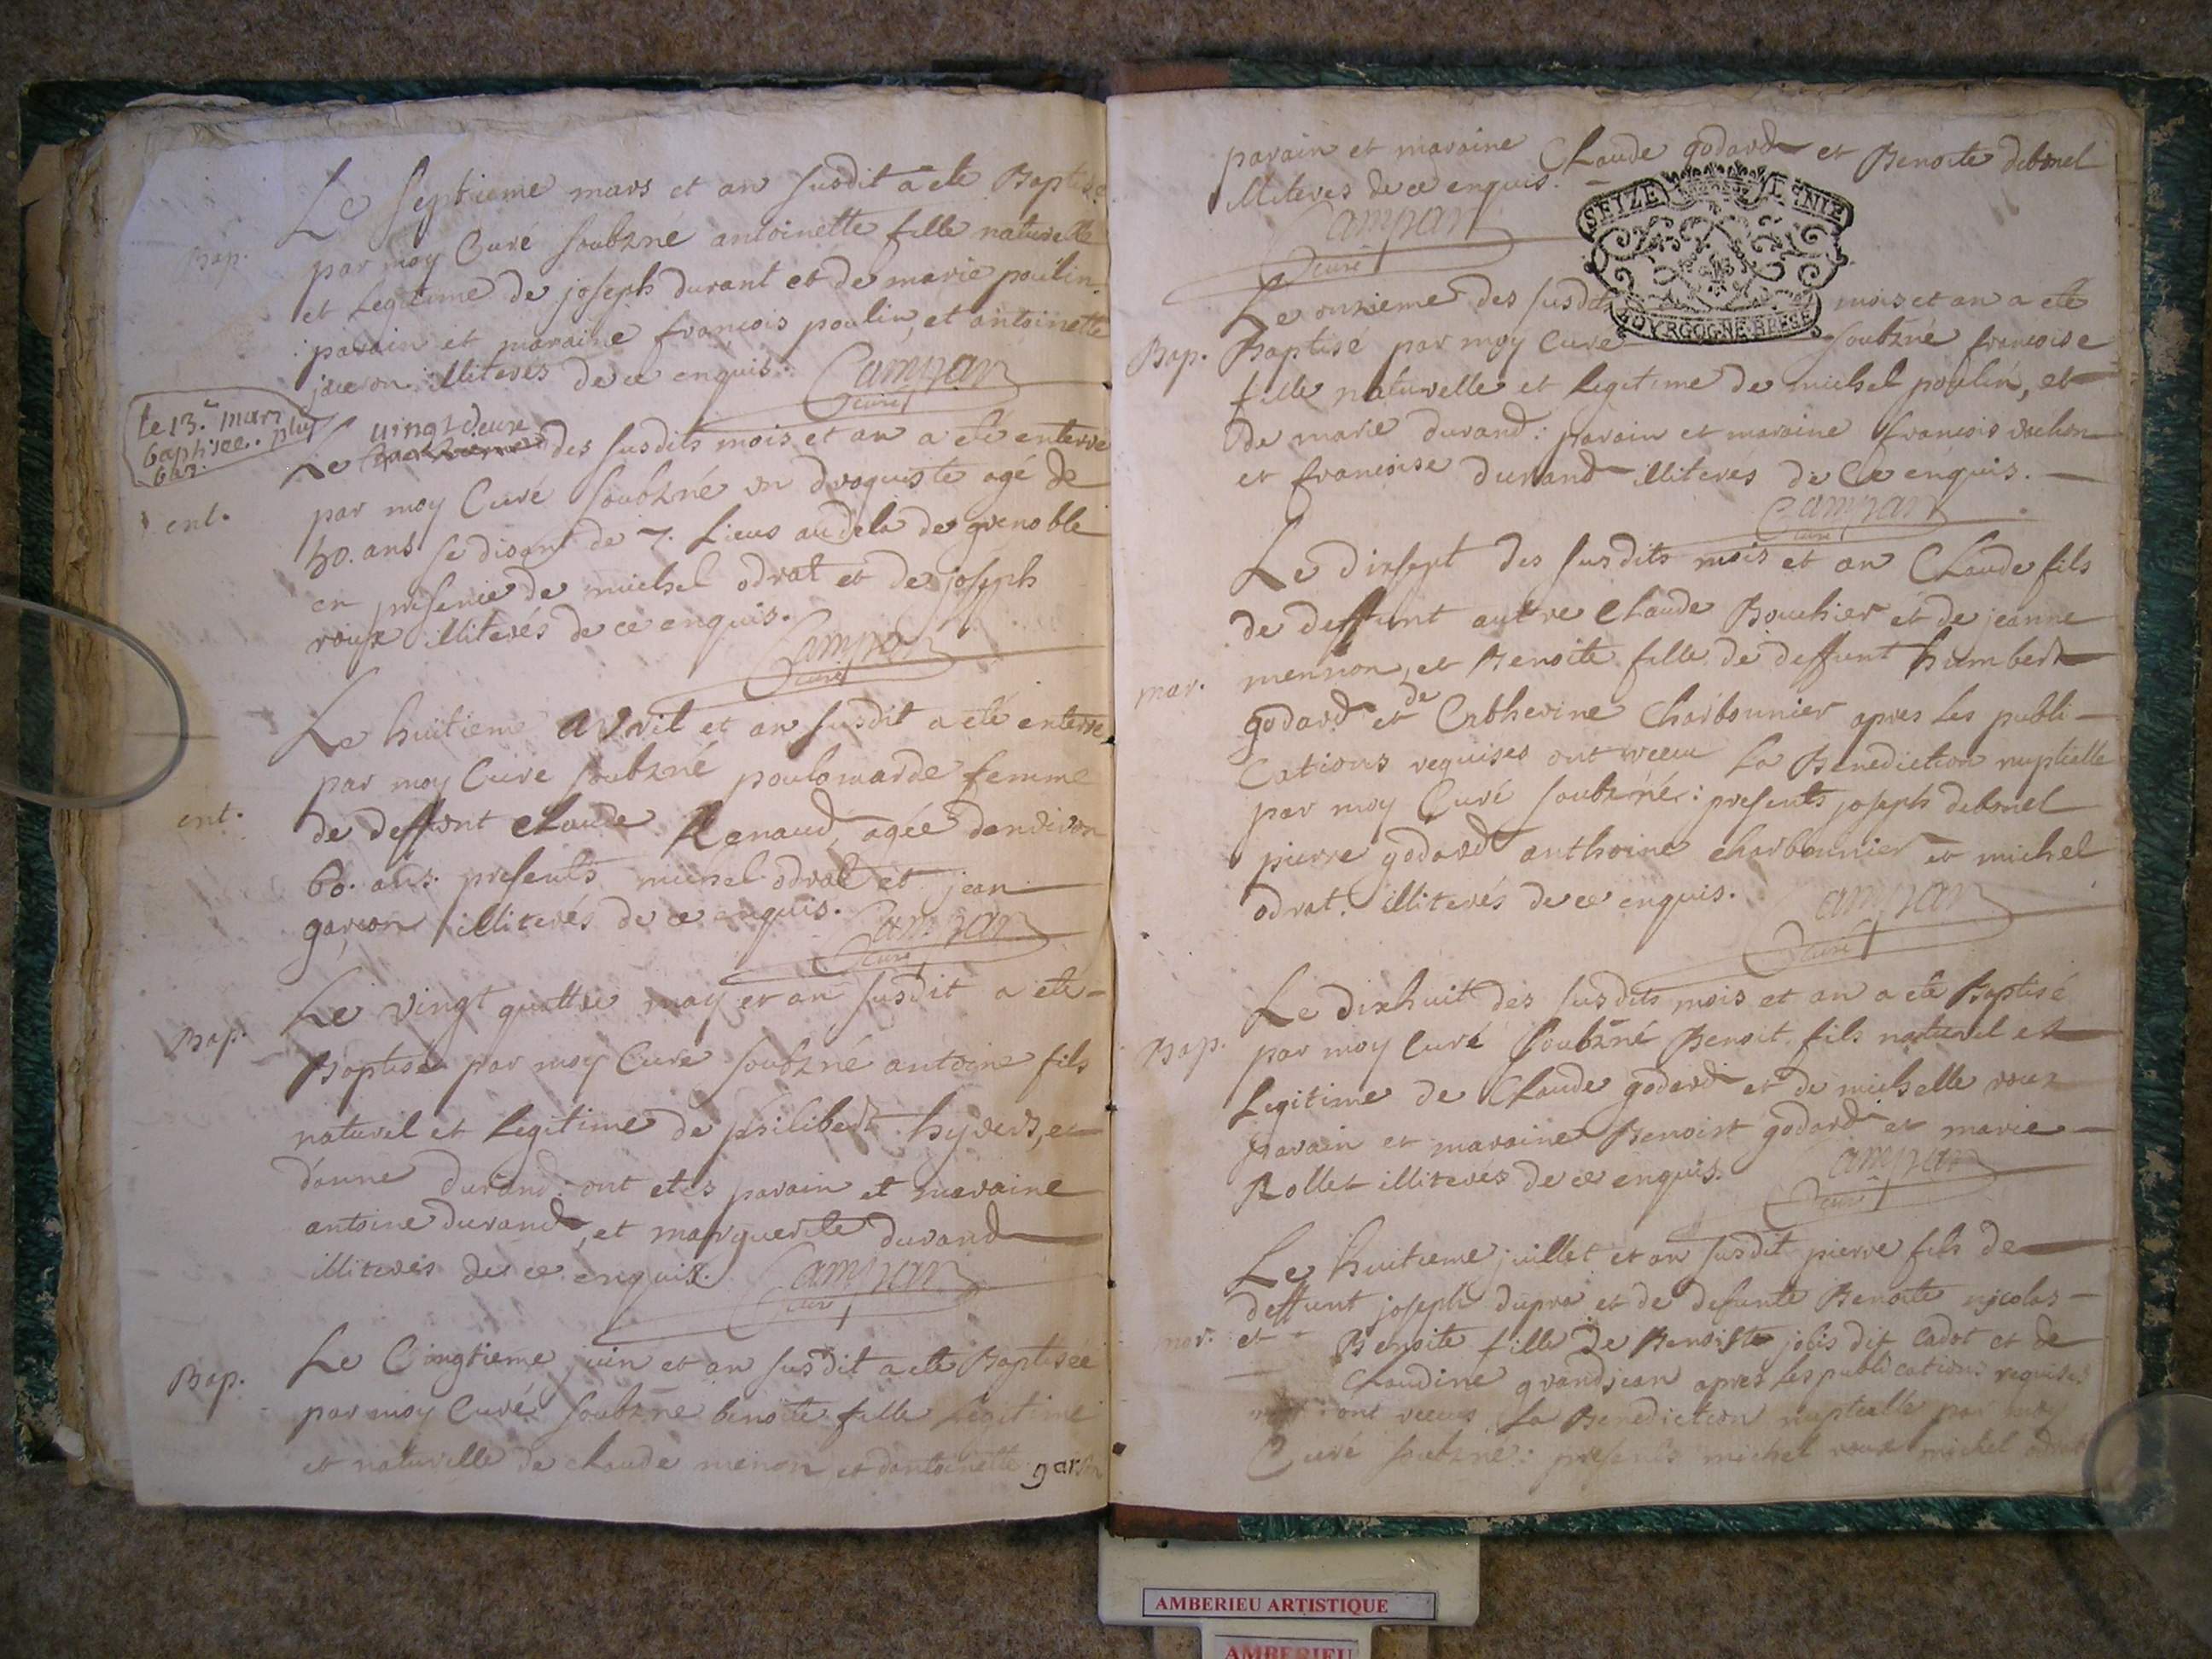 Le Septieme mars et an susdit a ete Baptisé
Bap. par moy Curé soubzné antoinette fille naturelle
et Legitime de joseph durant et de marie poulin
parain et maraine françois poulin, et antoinette
jaceron illiterés de ce enquis. Campan
curé
le 13.e mars
baptisee. plus
bas.
Le vingt deuxe des susdits mois et an a eté enterré
ent. par moy Curé soubzné un droguiste agé de
50. ans se disant de 7. Lieus au dela de grenoble
en presence de michel odrat et de joseph
roux illiterés de ce enquis.
Campan
curé
Le huitieme Avril et an susdit a eté enterré
par moy Cure soubzné poulomarde femme
ent. de deffunt Claude Renaud, agée denviron
60. ans. presents michel odrat et jean
garçon illiterés de ce enquis. Campan
curé
Le vingt quattre may et an susdit a ete
Bap. Baptisé par moy Cure soubzné antoine fils
naturel et Legitime de philibert hyvert, et
d'anne durand: ont etes parain et maraine
antoine durand, et marguerite durand
illiterés de ce enquis. Campan
curé
Le Cinqtieme juin et an susdit a ete Baptisée
Bap. par moy Curé soubzné benoite fille Legitime
et naturelle de claude menon et dantoinette garson
parain et maraine Claude godard et Benoite debonel
illiteres de ce enquis.
Campan
curé
SEIZE DENIE
BOVRGOGNE BRESSE
Le onzieme des susdits mois et an a eté
Bap. Baptisé par moy Curé soubzné francoise
fille naturelle et Legitime de michel poulin, et
de marie durand: parain et maraine francois vachon
et francoise durand illiterés de Ce enquis.
Campan
curé
Le dixsept des susdits mois et an Claude fils
de deffunt autre Claude Bouchier et de jeanne
mar. mennon, et Benoite fille de deffunt humbert
godard et de Catherine Charbonnier apres les publi-
Cations requises ont receu La Benediction nuptielle
par moy Curé soubzné: presents joseph debonel
pierre godard anthoine charbonnier et michel
odrat. illiterés de ce enquis. Campan
curé
Le dixhuit des susdits mois et an a eté Baptisé
Bap. par moy Curé soubzné Benoit fils naturel et
Legitime de Claude godard et de michelle roux
parain et maraine Benoist godard et marie
Rollet illiterés de ce enquis. Campan
curé
Le huitieme juillet et an susdit pierre fils de
deffunt joseph dupra et de defunte Benoite nicolas
mar. et Benoite fille de Benoiste jolis dit Cadot et de
Claudine grandjean apres les publications requises
ont receus La Benediction nuptialle par moy
Curé soubzné: presents michel roux michel odrat
AMBERIEU ARTISTIQUE
AMBERIEU